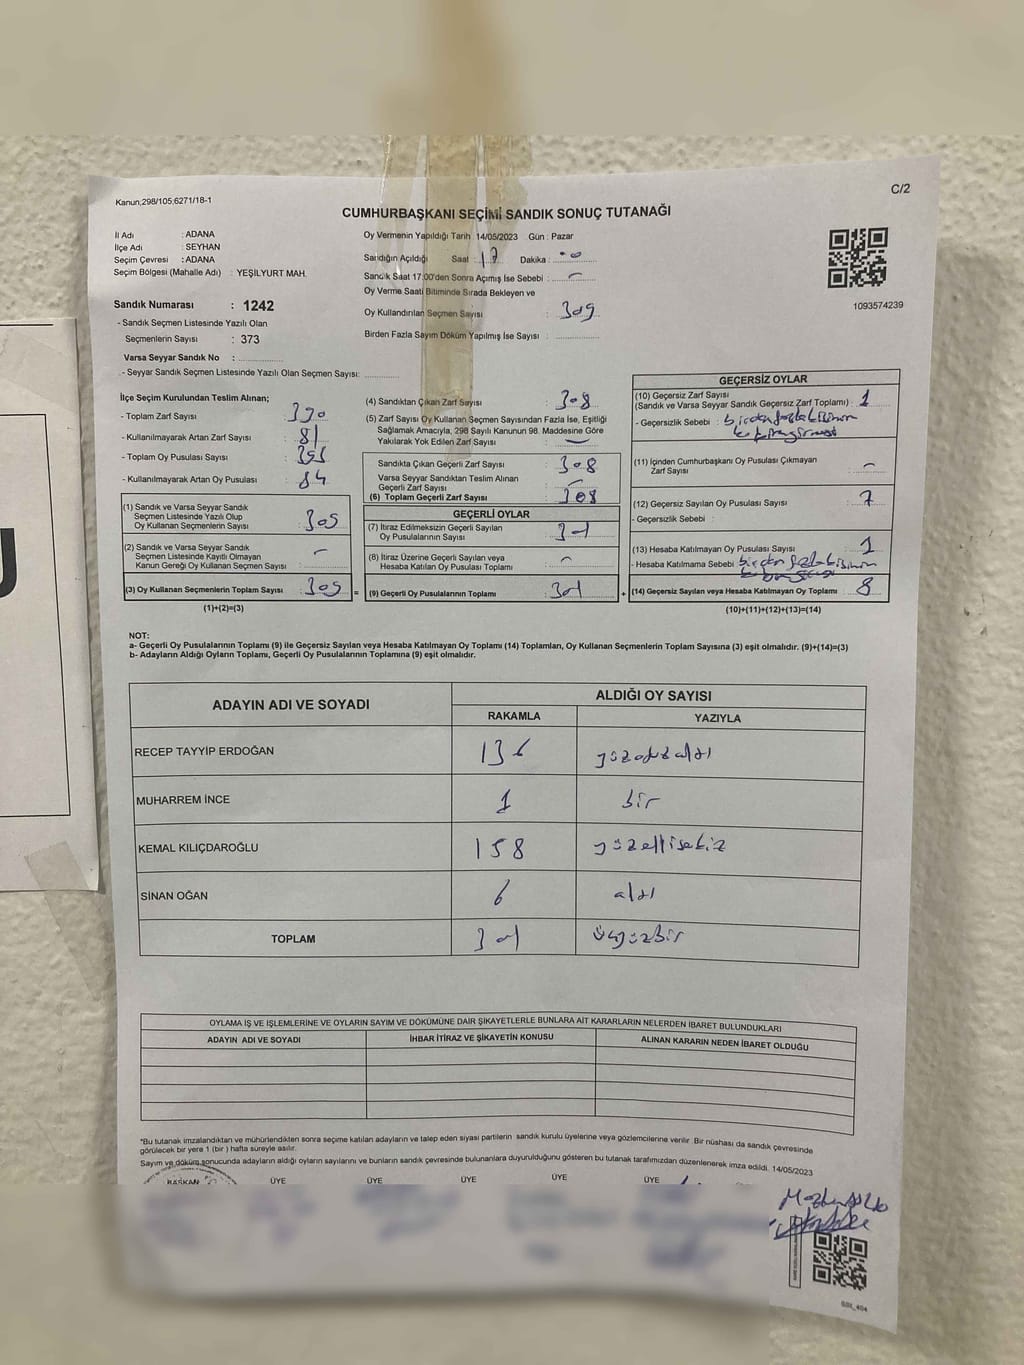 C/2
Kanun;298/105;6271/18-1
CUMHURBAŞKANI SEÇİMİ SANDIK SONUÇ TUTANAĞI
İl Adı : ADANA
İlçe Adı : SEYHAN
Seçim Çevresi : ADANA
Seçim Bölgesi (Mahalle Adı) : YEŞİLYURT MAH.
Sandık Numarası : 1242
- Sandık Seçmen Listesinde Yazılı Olan
Seçmenlerin Sayısı : 373
Varsa Seyyar Sandık No :
- Seyyar Sandık Seçmen Listesinde Yazılı Olan Seçmen Sayısı:
Oy Vermenin Yapıldığı Tarih : 14/05/2023 Gün : Pazar
Sandığın Açıldığı Saat : 17 Dakika : 00
Sandık Saat 17:00'den Sonra Açmış İse Sebebi : -
Oy Verme Saati Bitiminde Sırada Bekleyen ve
Oy Kullandırılan Seçmen Sayısı : 309
Birden Fazla Sayım Döküm Yapılmış İse Sayısı :
1093574239
İlçe Seçim Kurulundan Teslim Alınan;
- Toplam Zarf Sayısı : 390
- Kullanılmayarak Artan Zarf Sayısı : 81
- Toplam Oy Pusulası Sayısı :
- Kullanılmayarak Artan Oy Pusulası : 84
(1) Sandık ve Varsa Seyyar Sandık
Seçmen Listesinde Yazılı Olup
Oy Kullanan Seçmenlerin Sayısı : 309
(2) Sandık ve Varsa Seyyar Sandık
Seçmen Listesinde Kayıtlı Olmayan
Kanun Gereği Oy Kullanan Seçmen Sayısı : -
(3) Oy Kullanan Seçmenlerin Toplam Sayısı : 309
(1)+(2)=(3)
(4) Sandıktan Çıkan Zarf Sayısı : 308
(5) Zarf Sayısı Oy Kullanan Seçmen Sayısından Fazla İse, Eşitliği
Sağlamak Amacıyla, 298 Sayılı Kanunun 98. Maddesine Göre
Yakılarak Yok Edilen Zarf Sayısı : -
Sandıkta Çıkan Geçerli Zarf Sayısı : 308
Varsa Seyyar Sandıktan Teslim Alınan
Geçerli Zarf Sayısı : -
(6) Toplam Geçerli Zarf Sayısı : 308
GEÇERLİ OYLAR
(7) İtiraz Edilmeksizin Geçerli Sayılan
Oy Pusulalarının Sayısı : 301
(8) İtiraz Üzerine Geçerli Sayılan veya
Hesaba Katılan Oy Pusulası Toplamı : -
= (9) Geçerli Oy Pusulalarının Toplamı : 301 +
GEÇERSİZ OYLAR
(10) Geçersiz Zarf Sayısı
(Sandık ve Varsa Seyyar Sandık Geçersiz Zarf Toplamı) : 1
- Geçersizlik Sebebi : birden fazla
(11) İçinden Cumhurbaşkanı Oy Pusulası Çıkmayan
Zarf Sayısı : -
(12) Geçersiz Sayılan Oy Pusulası Sayısı : 7
- Geçersizlik Sebebi :
(13) Hesaba Katılmayan Oy Pusulası Sayısı : 1
- Hesaba Katılmama Sebebi : birden fazla
(14) Geçersiz Sayılan veya Hesaba Katılmayan Oy Toplamı : 8
(10)+(11)+(12)+(13)=(14)
NOT:
a- Geçerli Oy Pusulalarının Toplamı (9) ile Geçersiz Sayılan veya Hesaba Katılmayan Oy Toplamı (14) Toplamları, Oy Kullanan Seçmenlerin Toplam Sayısına (3) eşit olmalıdır. (9)+(14)=(3)
b- Adayların Aldığı Oyların Toplamı, Geçerli Oy Pusulalarının Toplamına (9) eşit olmalıdır.
ADAYIN ADI VE SOYADI ALDIĞI OY SAYISI
RAKAMLA YAZIYLA
RECEP TAYYİP ERDOĞAN 136 yüzotuzaltı
MUHARREM İNCE 1 bir
KEMAL KILIÇDAROĞLU 158 yüzellisekiz
SİNAN OĞAN 6 altı
TOPLAM 301 üçyüzbir
OYLAMA İŞ VE İŞLEMLERİNE VE OYLARIN SAYIM VE DÖKÜMÜNE DAİR ŞİKAYETLERLE BUNLARA AİT KARARLARIN NELERDEN İBARET BULUNDUKLARI
ADAYIN ADI VE SOYADI İHBAR İTİRAZ VE ŞİKAYETİN KONUSU ALINAN KARARIN NEDEN İBARET OLDUĞU
*Bu tutanak imzalandıktan ve mühürlendikten sonra seçime katılan adayların ve talep eden siyasi partilerin sandık kurulu üyelerine veya gözlemcilerine verilir. Bir nüshası da sandık çevresinde
görülecek bir yere 1 (bir ) hafta süreyle asılır.
Sayım ve döküm sonucunda adayların aldığı oyların sayılarını ve bunların sandık çevresinde bulunanlara duyurulduğunu gösteren bu tutanak tarafımızdan düzenlenerek imza edildi. 14/05/2023
BAŞKAN ÜYE ÜYE ÜYE ÜYE ÜYE